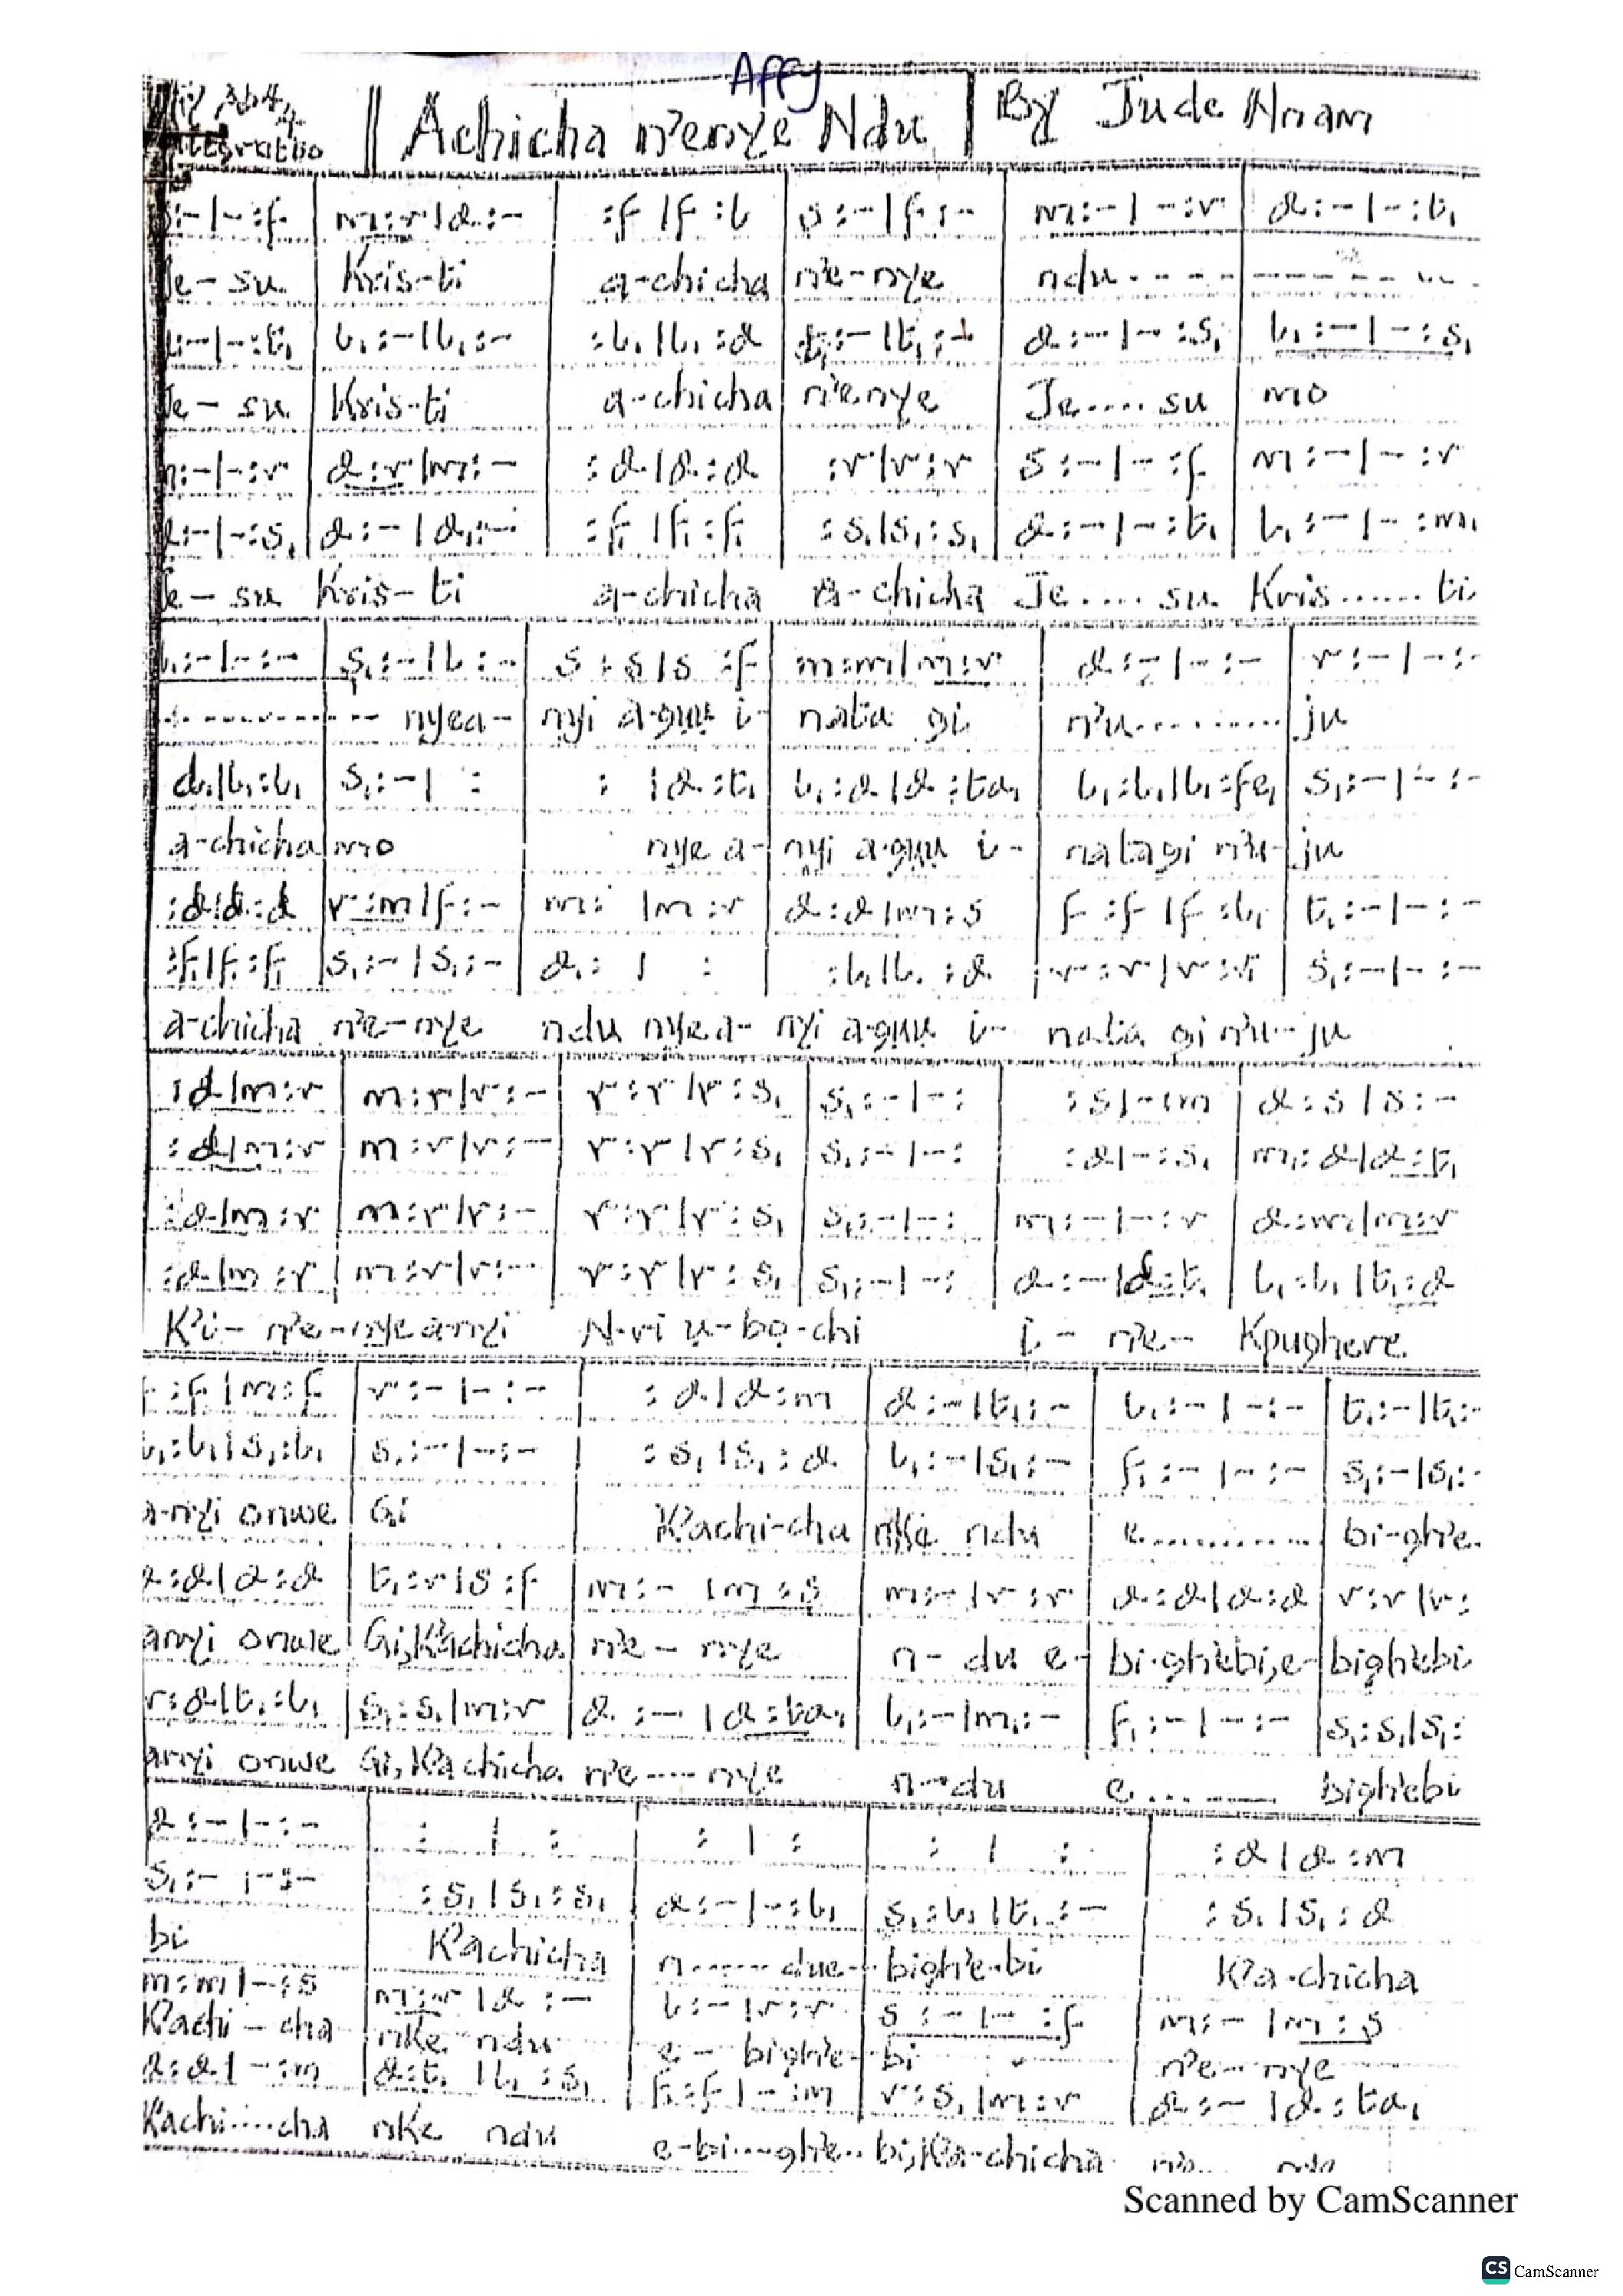 Affy
Achicha n'enye Ndu By Jude Nnam
:- | - :f | m :r | d :- | :f | f :l | s :- | f :- | m :- | - :r | d :- | - :t₁
Je - su Kris-ti a-chicha n'e-nye ndu - - - - - - - - - - -
:- | - :t₁ | l₁ :- | l₁ :- | :l₁ | l₁ :d | t₁ :- | t₁ :- | d :- | - :s₁ | l₁ :- | - :s₁
Je - su Kris-ti a-chicha n'enye Je.....su mo
m :- | - :r | d :r | m :- | :d | d :d | :r | r :r | s :- | - :f | m :- | - :r
d :- | - :s₁ | d :- | d₁ :- | :f₁ | f₁ :f₁ | :s₁ | s₁ :s₁ | d :- | - :t₁ | l₁ :- | - :m₁
Je - su Kris-ti a-chicha a-chicha Je.... su Kris...... ti
l₁ :- | - :- | s₁ :- | l :- | s :s | s :f | m :m | m :r | d :- | - :- | r :- | - :-
- - - - - - - nyea- nyi a-gụụ i- nata gi n'u.......... ju
d | l₁ :l₁ | s₁ :- | : | : | d :t₁ | l₁ :d | d :ta₁ | l₁ :l₁ | l₁ :fe₁ | s₁ :- | - :-
a-chicha mo nye a- nyi a-gụụ i- natagi n'u- ju
:d | d :d | r :m | f :- | m : | m :r | d :d | m :s | f :f | f :l₁ | t₁ :- | - :-
:f₁ | f₁ :f₁ | s₁ :- | s₁ :- | d₁ : | : | :l₁ | l₁ :d | r :r | r :r | s₁ :- | - :-
a-chicha n'e-nye ndu nyea- nyi a-gụụ i- nata gi n'u- ju
:d | m :r | m :r | r :- | r :r | r :s₁ | s₁ :- | - : | :s | - :m | d :s | s :-
:d | m :r | m :r | r :- | r :r | r :s₁ | s₁ :- | - : | :d | - :s₁ | m₁ :d | d :t₁
:d | m :r | m :r | r :- | r :r | r :s₁ | s₁ :- | - : | m :- | - :r | d :m | m :r
:d | m :r | m :r | r :- | r :r | r :s₁ | s₁ :- | - : | d :- | d :t₁ | l₁ :l₁ | t₁ :d
K'i- n'e-nyeanyi N-ri ụ-bọ-chi I - n'e- Kpughere
f :f | m :f | r :- | - :- | :d | d :m | d :- | t₁ :- | l₁ :- | - :- | t₁ :- | t₁ :-
l₁ :l₁ | s₁ :l₁ | s₁ :- | - :- | :s₁ | s₁ :d | l₁ :- | s₁ :- | f₁ :- | - :- | s₁ :- | s₁ :-
a-nyi onwe Gi K'achi-cha nke ndu e............ bi-gh'e-
d :d | d :d | t₁ :r | s :f | m :- | m :s | m :- | r :r | d :d | d :d | r :r | r :
anyi onwe Gi,K'achicha n'e - nye n- du e- bi-gh'ebi,e- bigh'ebi
r :d | t₁ :l₁ | s₁ :s₁ | m :r | d :- | d :ta₁ | l₁ :- | m₁ :- | f₁ :- | - :- | s₁ :s₁ | s₁ :
anyi onwe Gi, K'achicha n'e----nye n--du e........ bigh'ebi
d :- | - :- | : | : | : | : | : | : | :d | d :m
s₁ :- | - :- | :s₁ | s₁ :s₁ | d :- | - :l₁ | s₁ :l₁ | t₁ :- | :s₁ | s₁ :d
bi K'achicha n...... due- bigh'e-bi K'a-chicha
m :m | - :s | m :r | d :- | l₁ :- | r :r | s :- | - :f | m :- | m :s
K'achi - cha nke ndu e - bigh'e- bi n'e--nye
d :d | - :m | d :t₁ | l₁ :s₁ | f :f | - :m | r :s₁ | m :r | d :- | d :ta₁
K'achi....cha nke ndu e-bi...gh'e-- bi,K'a-chicha
Scanned by CamScanner
CS CamScanner